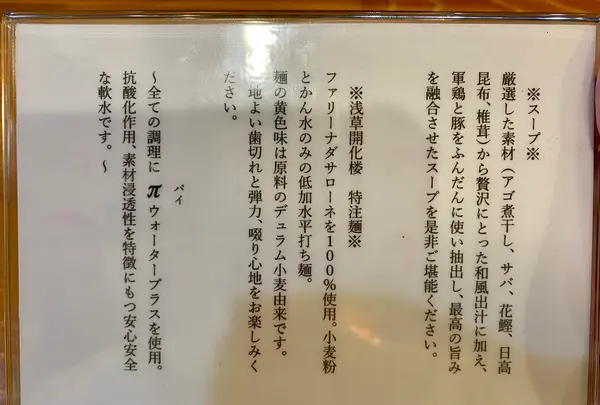 ※スープ※
厳選した素材(アゴ煮干し、サバ、花鰹、日高
昆布、椎茸)から贅沢にとった和風出汁に加え、
軍鶏と豚をふんだんに使い抽出し、最高の旨み
を融合させたスープを是非ご堪能ください。
※浅草開化楼 特注麺※
ファリーナダサローネを100%使用。小麦粉
とかん水のみの低加水平打ち麺。
麺の黄色味は原料のデュラム小麦由来です。
地よい歯切れと弾力、啜り心地をお楽しみく
ださい。
~全ての調理に π ウォータープラスを使用。
パイ
抗酸化作用、素材浸透性を特徴にもつ安心安全
な軟水です。~